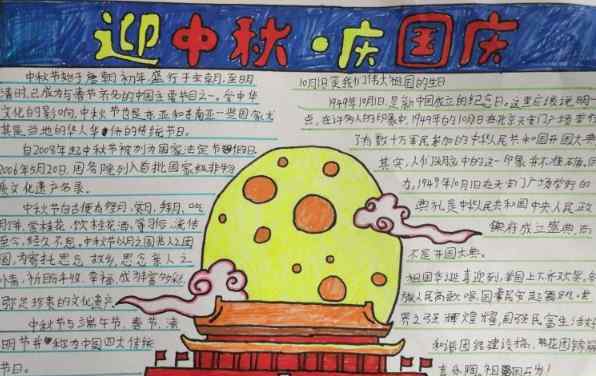 迎中秋·庆国庆
中秋节始于唐朝初年,盛行于宋朝,至明
清时,已成为与春节齐名的中国主要节日之一。受中华
文化的影响,中秋节也是东亚和东南亚一些国家尤
其是当地的华人华侨的传统节日。
自2008年起中秋节被列为国家法定节假日。
2006年5月20日,国务院列入首批国家级非物
质文化遗产名录。
中秋节自古便有祭月、赏月、拜月、吃
月饼、赏桂花、饮桂花酒等习俗,流传
至今,经久不息。中秋节以月之圆兆人之团
圆,为寄托思念故乡,思念亲人之
情,祈盼丰收、幸福,成为丰富多彩、
弥足珍贵的文化遗产。
中秋节与端午节、春节、清
明节并称为中国四大传统
节日。
10月1日是我们伟大祖国的生日
1949年10月1日,是新中国成立的纪念日。这里应该说明一
点,在许多人的印象中,1949年的10月1日在北京天安门广场举行
了有数十万军民参加的中华人民共和国开国大典
其实,人们头脑中的这一印象并不准确。
,1949年10月1日在天安门广场举行的
典礼是中华人民共和国中央人民政
府成立盛典,而
不是开国大典。
祖国华诞喜迎到,举国上下齐欢笑。各
族人民高歌唱,国富民安
界之
和谐团结建设梯,